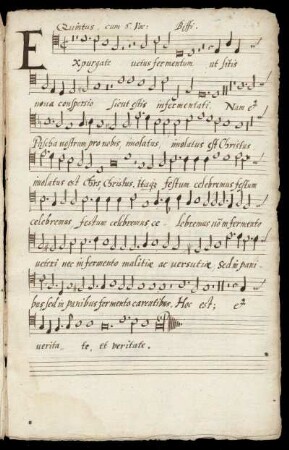 Quintus cum 5. Voc: Biffi.
Expurgate uetus fermentum ut sitis
noua conspersio sicut estis infermentati. Nam et
Pascha nostrum pro nobis, imolatus, imolatus est Christus,
imolatus est Chrs, Christus, Itaqz festum celebremus festum
celebremus festum celebremus ce = lebremus nō in fermento
ueteri nec in fermento malitiæ ac uersutiæ. Sed in pani
bus sed in panibus fermento carentibus. Hoc est; et
verita = te, et veritate.